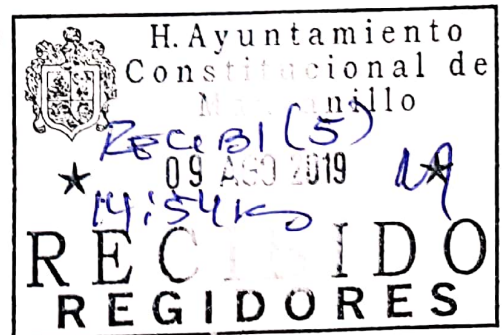 H. Ayuntamiento
Constitucional de
Manzanillo
RECIBI (5)
09 AGO 2019
14:54
RECIBIDO
REGIDORES